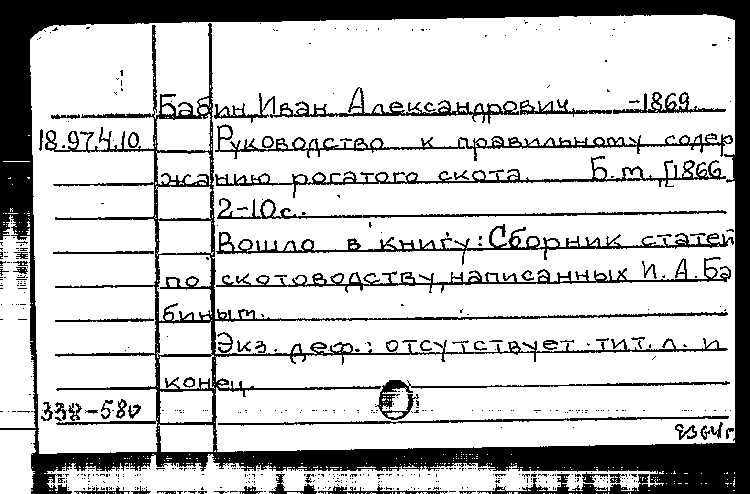 Бабин, Иван Александрович -1869
18.97.4.10 Руководство к правильному содер
жанию рогатого скота. Б.м., [1866]
2-10с.
Вошло в книгу: Сборник статей
по скотоводству, написанных И. А. Ба
биным.
Экз. деф.: отсутствует тит. л. и
конец.
338-580